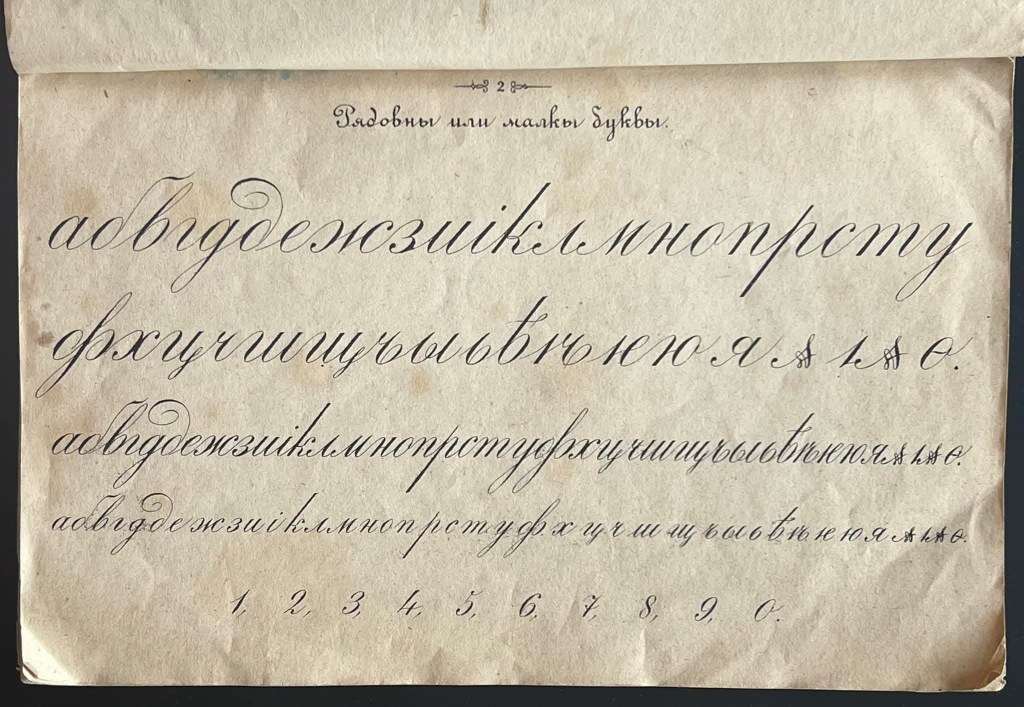 2
Рядовны или малкы буквы.
абвгддежзиіклмнопрсту
фхцчшщъыьѣѣѥюяѫѭѳ.
абвгддежзиіклмнопрстуфхцчшщъыьѣѣѥюяѫѭѳ.
абвгддежзиіклмнопрстуфхцчшщъыьѣѣѥюяѫѭѳ.
1, 2, 3, 4, 5, 6, 7, 8, 9, 0.